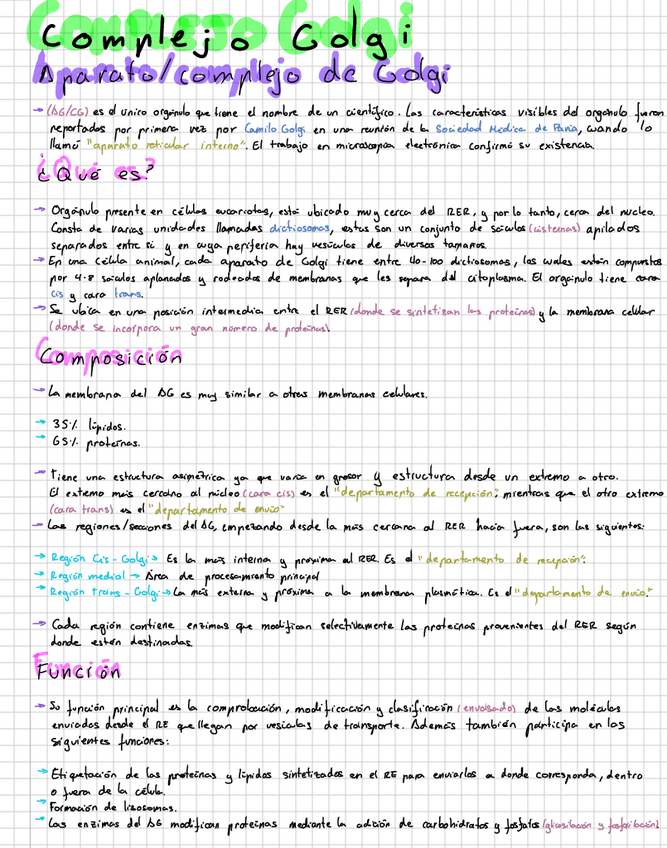 Complejo Golgi
Aparato/complejo de Golgi
→ (AG/CG) es el único orgánulo que tiene el nombre de un científico. Las características visibles del orgánulo fueron
reportados por primera vez por Camilo Golgi en una reunión de la Sociedad Medica de Pavia, cuando lo
llamó "aparato reticular interno". El trabajo en microscopia electrónica confirmó su existencia.
¿Qué es?
→ Orgánulo presente en células eucariotas, está ubicado muy cerca del RER, y por lo tanto, cerca del nucleo.
Consta de varias unidades llamadas dictiosomas, estas son un conjunto de sáculos (cisternas) apilados
separados entre sí y en cuya periferia hay vesículas de diversos tamaños.
→ En una célula animal, cada aparato de Golgi tiene entre 40-100 dictiosomas, las cuales están compuestas
por 4-8 sáculos aplanados y rodeados de membranas que les separa del citoplasma. El orgánulo tiene cara
cis y cara trans.
→ Se ubica en una posición intermedia entre el RER (donde se sintetizan las proteínas) y la membrana celular
(donde se incorpora un gran número de proteínas)
Composición
→ La membrana del AG es muy similar a otras membranas celulares.
→ 35% lípidos.
→ 65% proteínas.
→ Tiene una estructura asimétrica ya que varía en grosor y estructura desde un extremo a otro.
El extremo más cercano al núcleo (cara cis) es el "departamento de recepción", mientras que el otro extremo
(cara trans) es el "departamento de envío"
→ Las regiones/secciones del AG, empezando desde la más cercana al RER hacia fuera, son las siguientes:
→ Región Cis-Golgi → Es la más interna y proxima al RER. Es el "departamento de recepción".
→ Región medial → Área de procesamiento principal
→ Región trans-Golgi → La más externa y próxima a la membrana plasmática. Es el "departamento de envío."
→ Cada región contiene enzimas que modifican selectivamente las proteínas provenientes del RER según
donde estén destinadas
Función
→ Su función principal es la comprobación, modificación y clasificación (envasado) de las moléculas
enviadas desde el RE que llegan por vesículas de transporte. Además también participa en las
siguientes funciones:
→ Etiquetación de las proteínas y lípidos sintetizados en el RE para enviarlos a donde corresponda, dentro
o fuera de la célula.
→ Formación de lisosomas.
→ Las enzimas del AG modifican proteínas mediante la adición de carbohidratos y fosfatos (glicosilación y fosforilación)